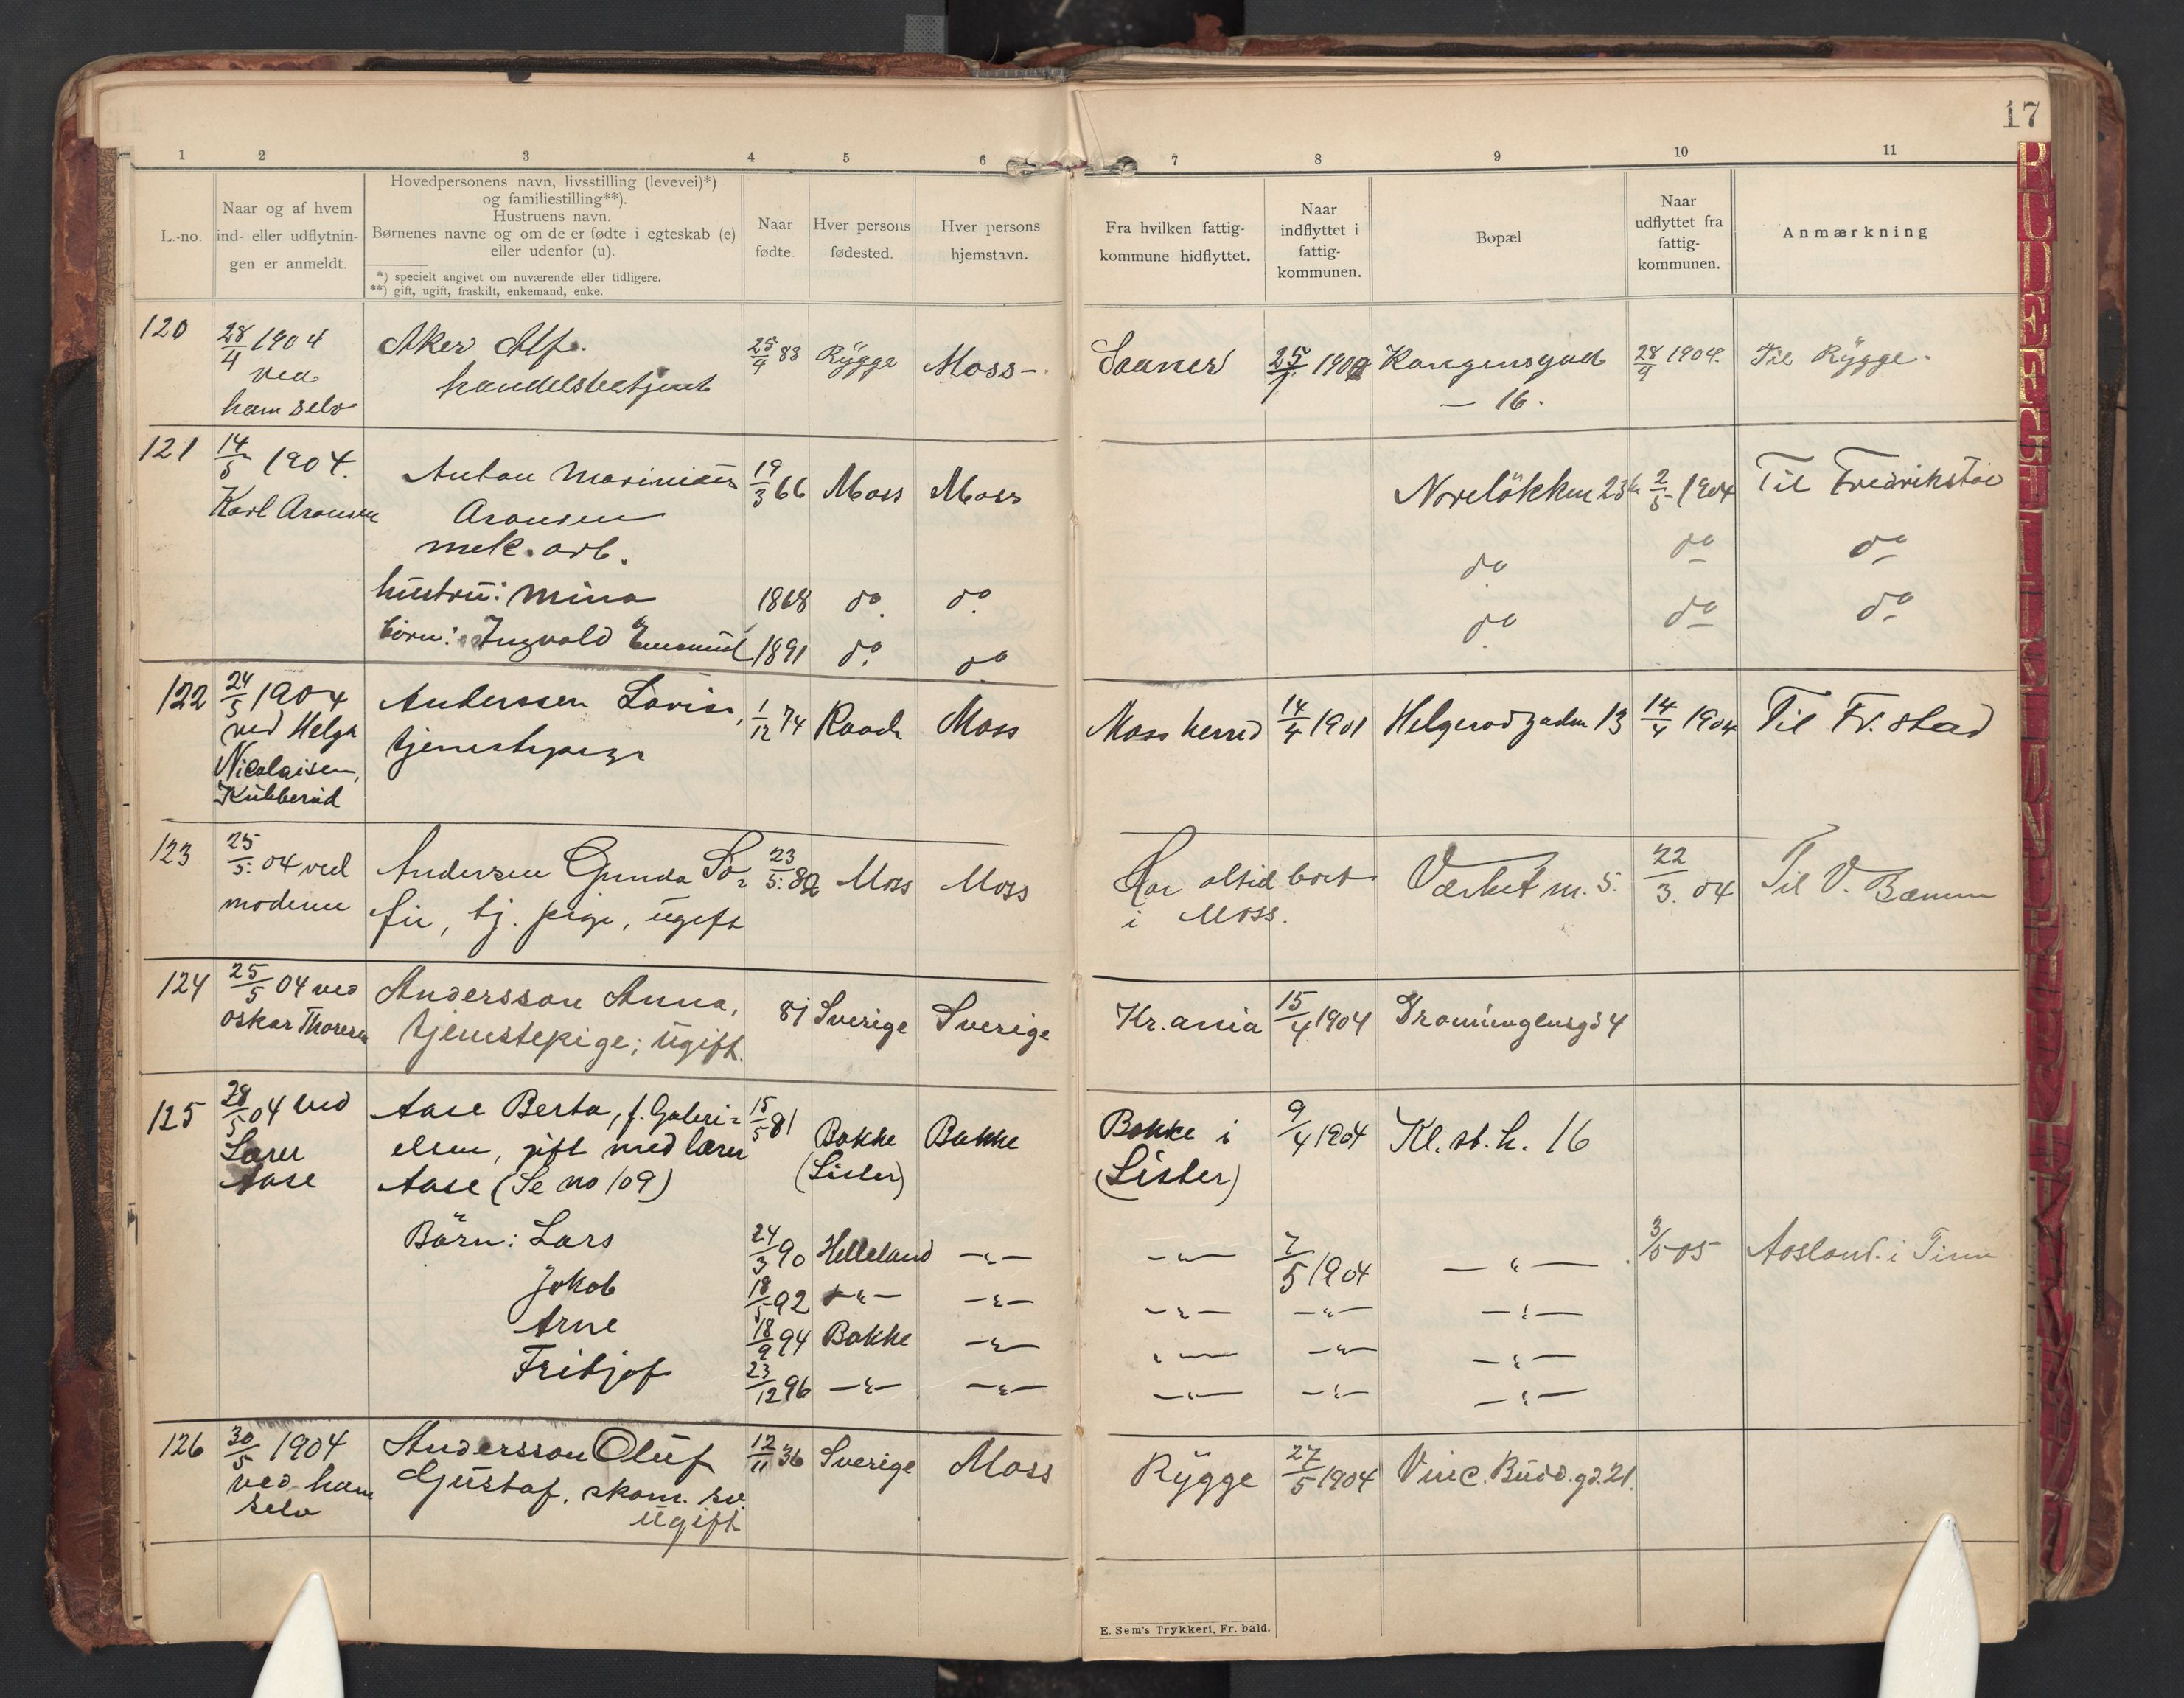 17
1 2 3 4 5 6 7 8 9 10 11
L.-no.
Naar og af hvem
ind- eller udflytnin-
gen er anmeldt.
Hovedpersonens navn, livsstilling (levevei)*)
og familiestilling**).
Hustruens navn.
Børnenes navne og om de er fødte i egteskab (e)
eller udenfor (u).
*) specielt angivet om nuværende eller tidligere.
**) gift, ugift, fraskilt, enkemand, enke.
Naar
fødte.
Hver persons
fødested.
Hver persons
hjemstavn.
Fra hvilken fattig-
kommune hidflyttet.
Naar
indflyttet i
fattig-
kommunen.
Bopæl
Naar
udflyttet fra
fattig-
kommunen.
Anmærkning
120
28/4 1904
ved
ham selv
Aker Alf.
handelsbetjent
25/9 83 Rygge Moss -
Saaner 25/ Kongensgade
— 16.
28/4 1904. Til Rygge.
121
14/5 1904.
Karl Aronsen
Anton Marinius
Aronsen
mek. arb.
19/3 66 Moss Moss
Noreløkken 2/5 1904 Til Fredrikstad
do do do
hustru: Mina 1868 do do
do do do
børn: Ingvald Emanuel 1891 do do
122
24/5 1904
ved Helga
Nicolaisen,
Kubberød
Anderssen Lovise,
tjenestepige
1/12 74 Raade Moss
Moss herred 14/4 1901 Helgerodgaden 13 14/4 1904 Til Fr. stad
123
25/5. 04 ved
moderen
Andersen Gunda So=
fie, tj. pige, ugift
23/5. 82 Moss Moss
Har altid boet
i Moss.
Værket m. 5. 22/3. 04 Til V. Bærum
124
25/5 04 ved
Oskar Thoresen
Andersson Anna,
tjenestepige; ugift.
81 Sverige Sverige
Kr.ania 15/4 1904 Dronningensgd 4
125
28/5 04 ved
Lærer
Aase
Aase Berta, f. Gabri=
elsen, gift med lærer
Aase (Se no 109)
15/5 81 Bakke
(Lister)
Bakke
Bakke i
(Lister)
9/4 1904 Kl. st. h. 16
Börn: Lars 24/3 90 Helleland —"— —"— 7/5 1904 —"— 3/5 05 Aasland i Tinn
Jakob 18/5 92 —"— —"— —"— —"— —"—
Arne 18/9 94 Bakke —"— —"— —"— —"—
Fritjof 23/12 96 —"— —"— —"— —"— —"—
126
30/5 1904
ved ham
selv
Andersson Oluf
Gustaf, skom. sv.
ugift
12/11 36 Sverige Moss
Rygge 27/5 1904 Vinc. Budd. gd. 21.
E. Sem's Trykkeri, Fr. hald.